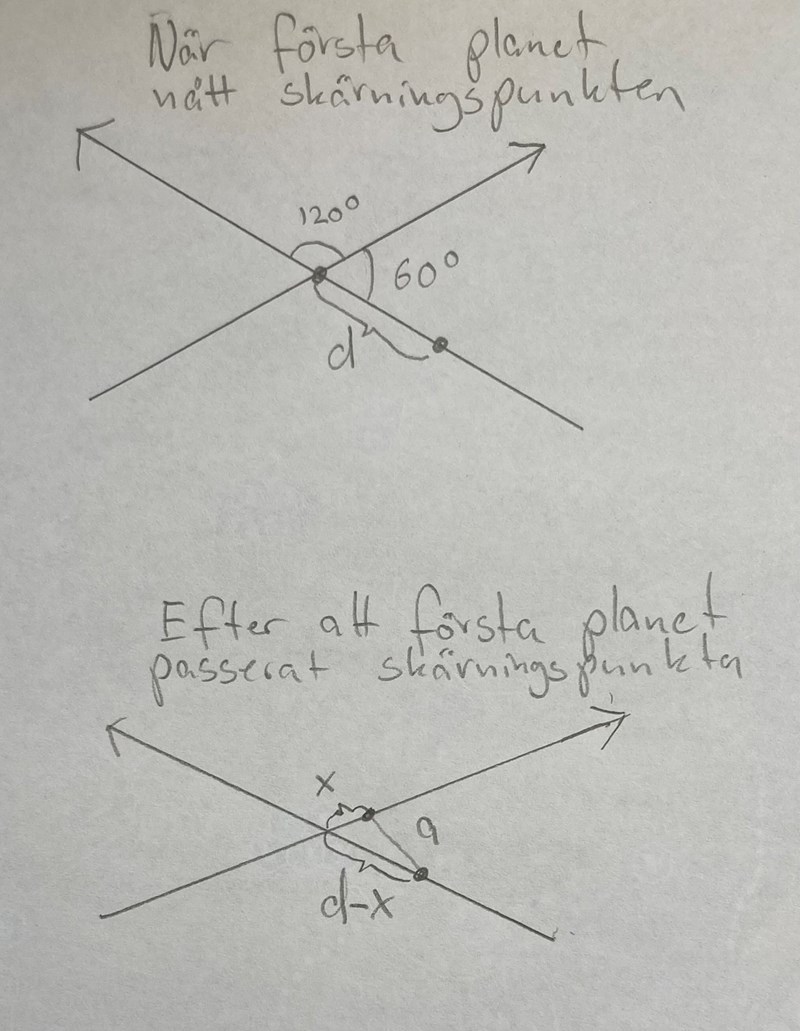 När första planet
nått skärningspunkten
120°
60°
d
Efter att första planet
passerat skärningspunkta
x
a
d-x